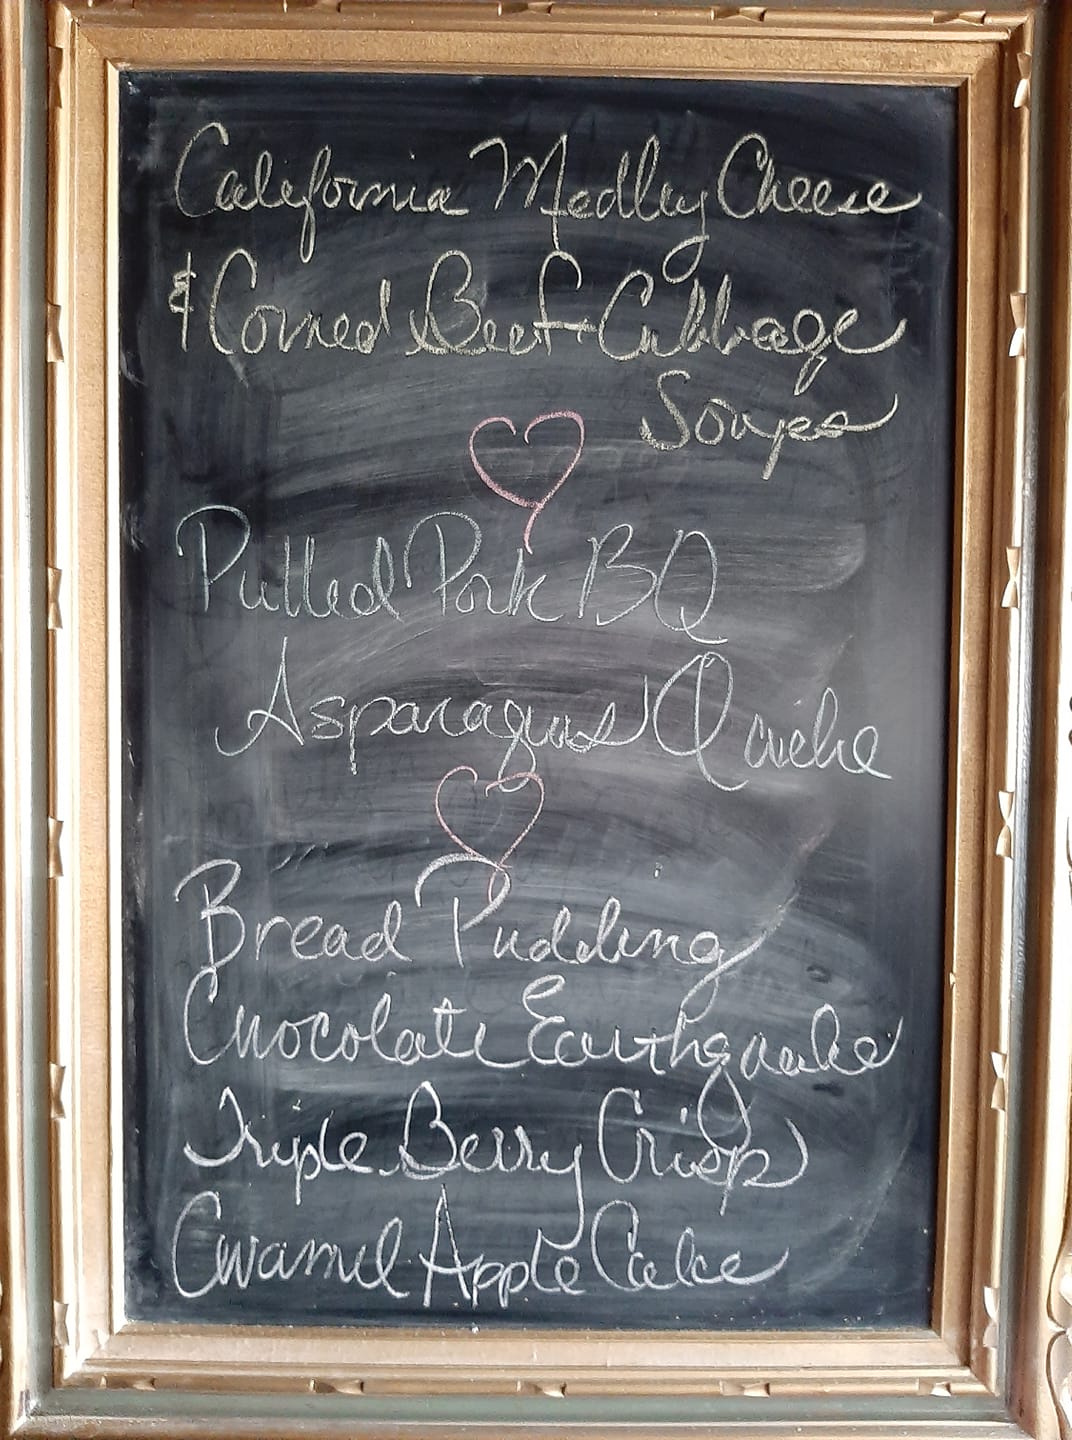 California Medley Cheese
& Corned Beef + Cabbage
Soups
Pulled Pork BBQ
Asparagus Quiche
Bread Pudding
Chocolate Earthquake
Triple Berry Crisp
Caramel Apple Cake